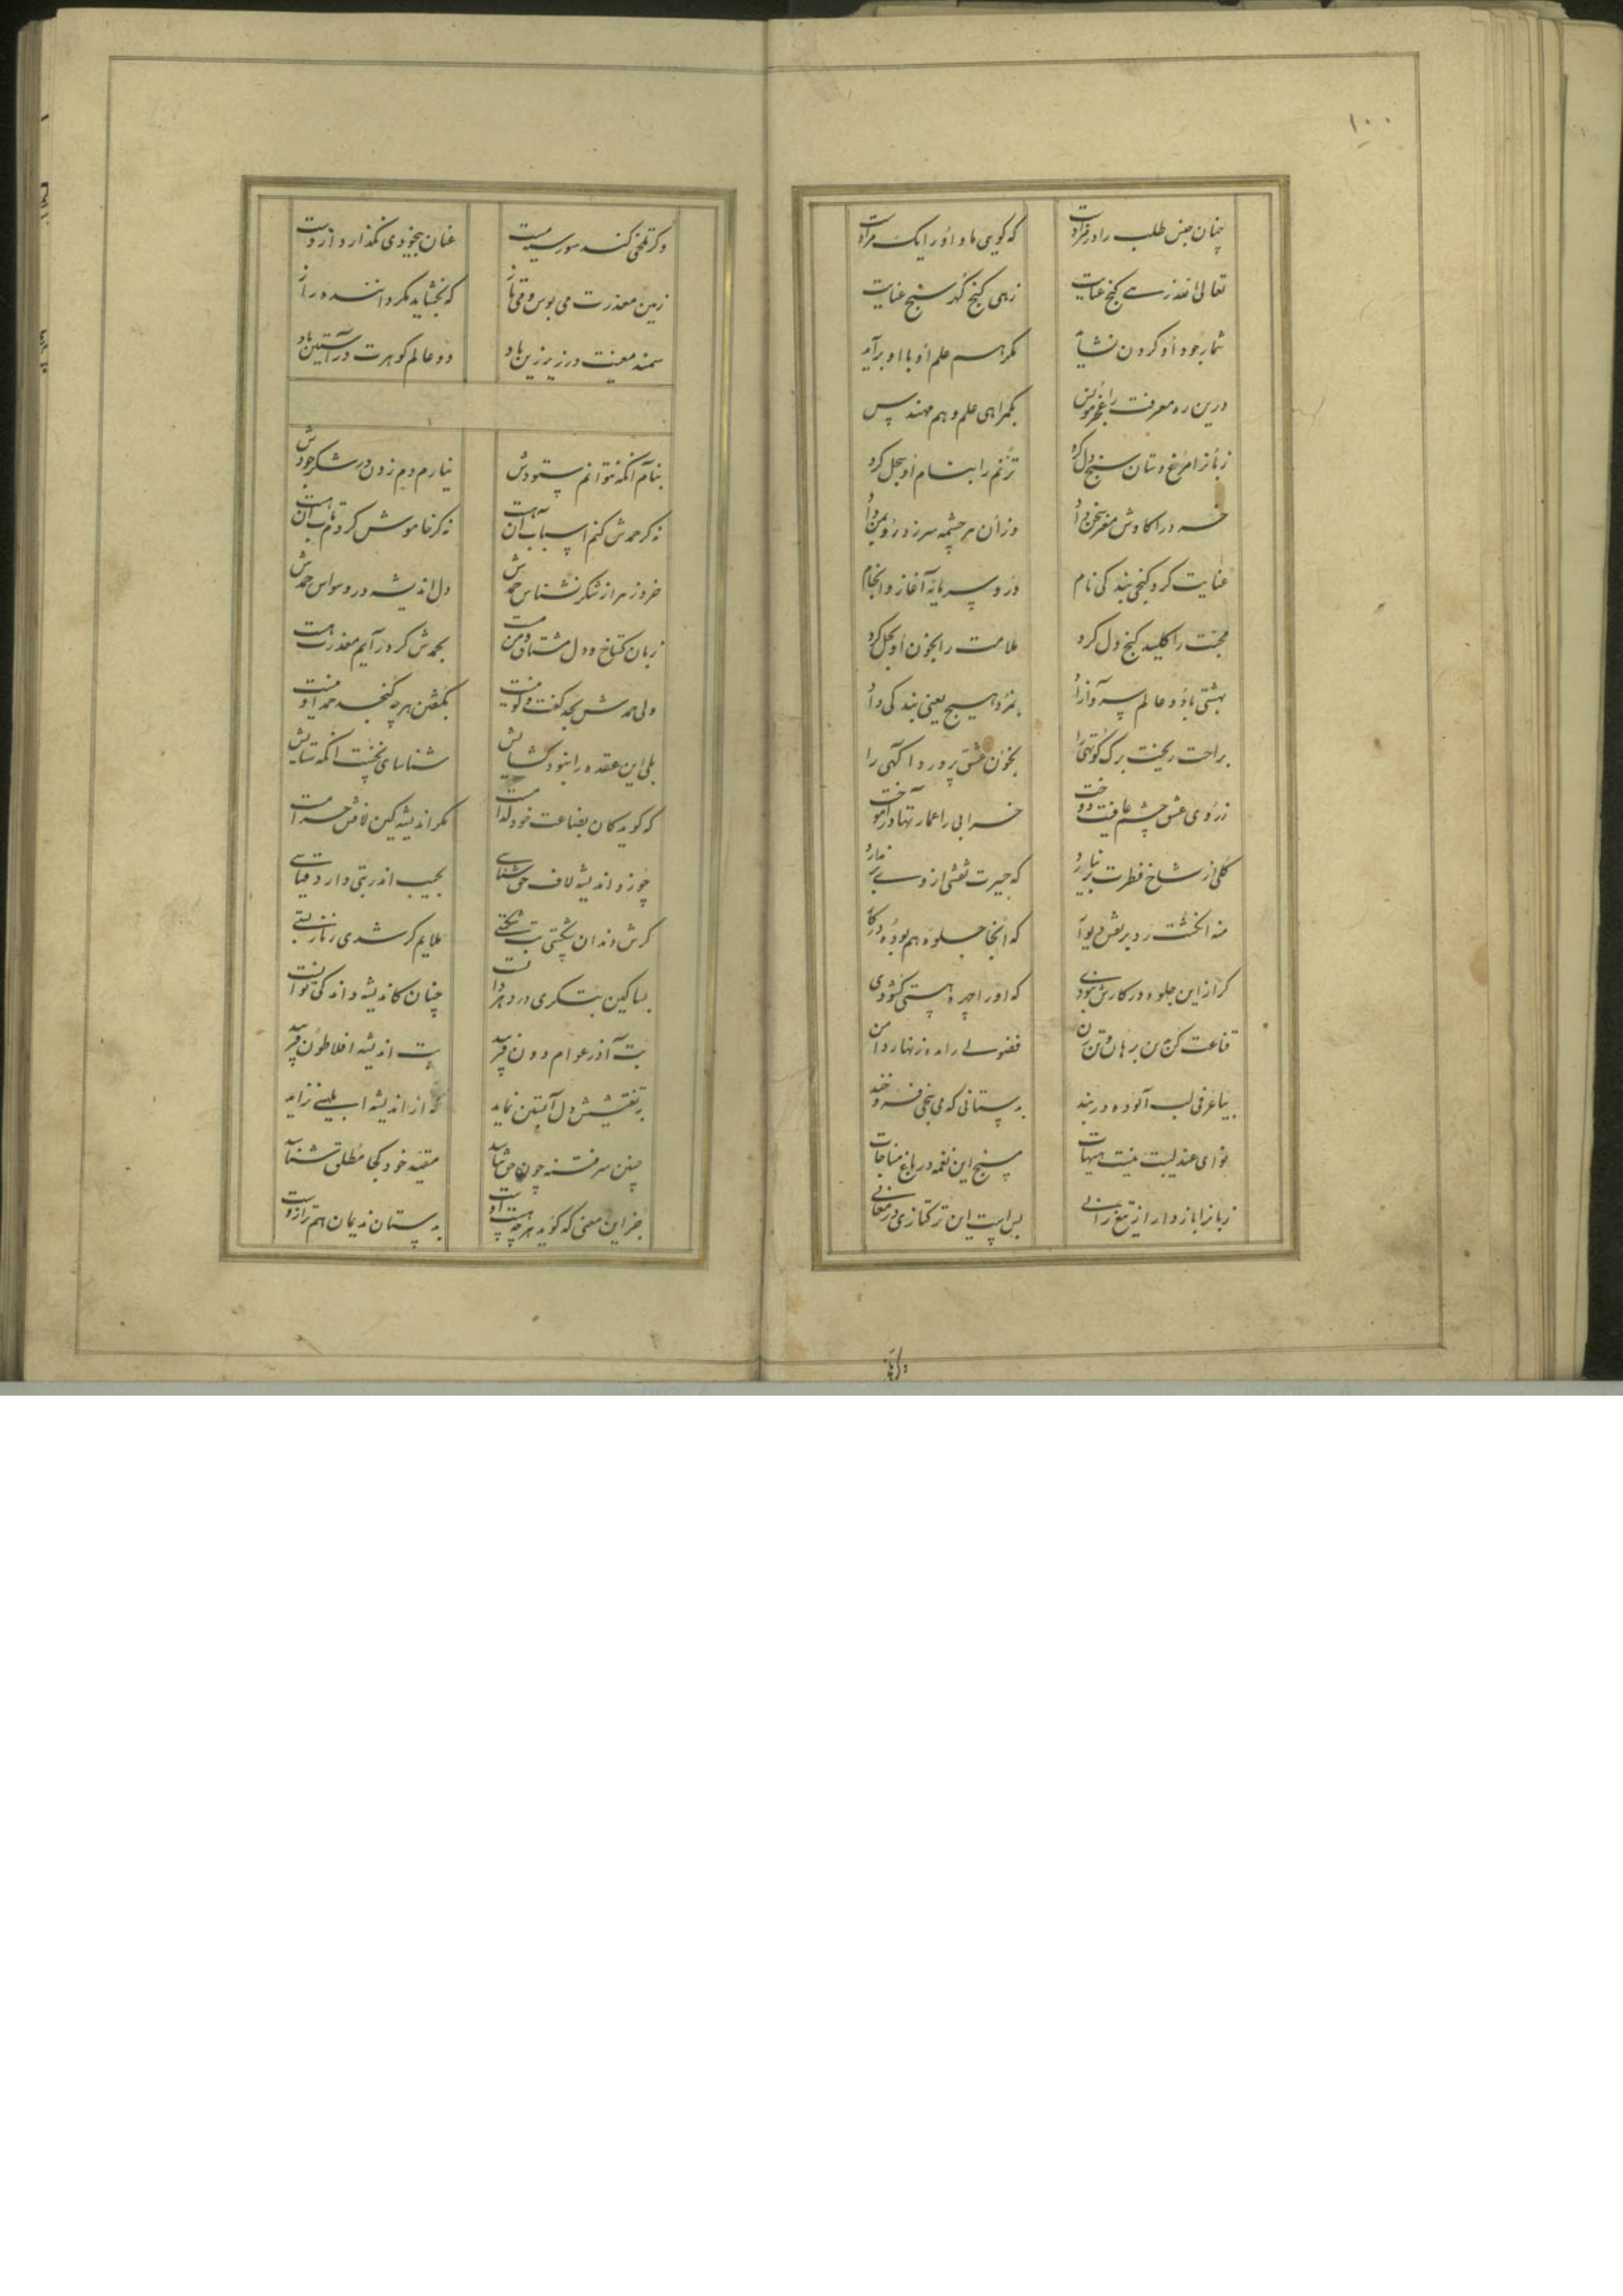 ۱۰۰
چنان جنس طلب را در مزادست که گویی داد او را یک مرادست
تعالی الله زهی گنج عنایت زهی گنج گهر سنج عنایت
شمار جود او کردن نشاید مگر هم علم او با او برآید
درین ره معرفت را
بگمراهی علم و هم مهندس
زبانرا مرغ دستان سنج دل کرد ترنم را بنام او بحل کرد
خرد را کاوش مغز سخن داد وزان سرچشمه سر در
عنایت کرد گنجی بندگی نام درو سرمایهٔ آغاز و انجام
محبت را کلید گنج دل کرد ملامت را بخون او بحل کرد
بهشتی باد و عالم بمزد هیچ یعنی بندگی داد
براحت ریخت برگ کوتهی را بخون عشق پرورد آگهی را
ز روی عشق چشم عافیت دوخت خرابی را عمارتها درآموخت
گلی از شاخ فطرت بر نیارد که حیرت نقشی از وی بر ندارد
منه انگشت رد بر نقش دیوار که آنجا جلوهٔ هم بوده در کار
گر از این جلوه در کارش نبودی که او را چهرهٔ هستی گشودی
قناعت کن فضولی را مده زنهار دامن
بیا عرفی لب آلوده در بند
نوای عندلیبت نیست هیهات مسنج این نغمه در باغ مناجات
زبانرا باز دار از تیغ رانی بس است این ترکتازی در معانی
وگر تلخی کند سوی سرمست عنان بیخودی نگذارد از دست
زمین معذرت می بوس و می ناز که بخشاید مگر داننده راز
سمند معنیت در زیر زین باد دو عالم گوهرت در آستین باد
بنام آنکه نتوانم ستودش نیارم دم زدن در شکر جودش
نه گر حمدش کنم اسباب آن هست نه گر خاموش گردم تاب آن هست
خرد ز هر از شکر نشناس حمدش دل اندیشه در وسواس حمدش
زبان گستاخ و دل مشتاق و من مست بحمدش گر درآیم معذرت هست
ولی حمدش بحد گفت و گو نیست بگفتن هر چه گنجد حمد او نیست
بلی این عقده را نبود گشایش شناسای نخست آنگه ستایش
که گوید کان بضاعت خود کدامست مگر اندیشه کین لافش حرامست
چو زد اندیشه لاف حق شناسی بجیب اندر بتی دارد قیاسی
گرش دندان شکستی بت شکستی ملایم گر شدی زنار بستی
بسا کین بتگری در دهر دانست چنان کاندیشه داند کی توانست
بت آذر عوام دون فریبد بت اندیشه افلاطون فریبد
به تفتیشش دل آبستن نماید از اندیشه ابلیسی نزاید
چنین سر فتنه چون حق شناسد مقید خود کجا مطلق شناسد
جز این معنی که گوید هر چه هست اوست به دستان ندیمان هم ترازوست